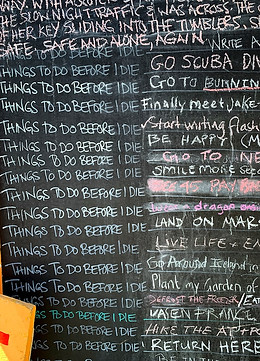 WAY. WITH A
THE SLOW NIGHT TRAFFIC & WAS ACROSS THE
OF HER KEY SLIDING INTO THE TUMBLERS. S
SAFE. SAFE AND ALONE, AGAIN.
WRITE A
THINGS TO DO BEFORE I DIE GO SCUBA DI
THINGS TO DO BEFORE I DIE GO TO BURNIN
THINGS TO DO BEFORE I DIE Finally meet Jake
THINGS TO DO BEFORE I DIE Start writing flash
THINGS TO DO BEFORE I DIE BE HAPPY (M
THINGS TO DO BEFORE I DIE GO TO NE
THINGS TO DO BEFORE I DIE SMILE MORE &
THINGS TO DO BEFORE I DIE
THINGS TO DO BEFORE I DIE a dragon
THINGS TO DO BEFORE I DIE LAND ON MAR
THINGS TO DO BEFORE I DIE LIVE LIFE + E
THINGS TO DO BEFORE I DIE Go Around Iceland in
THINGS TO DO BEFORE I DIE Plant my Garden of
THINGS TO DO BEFORE I DIE DEFROST THE FREEZER/EAT
THINGS TO DO BEFORE I DIE EN FRANCE
THINGS TO DO BEFORE I DIE HIKE THE APPA
THINGS TO DO BEFORE I DIE RETURN HERE